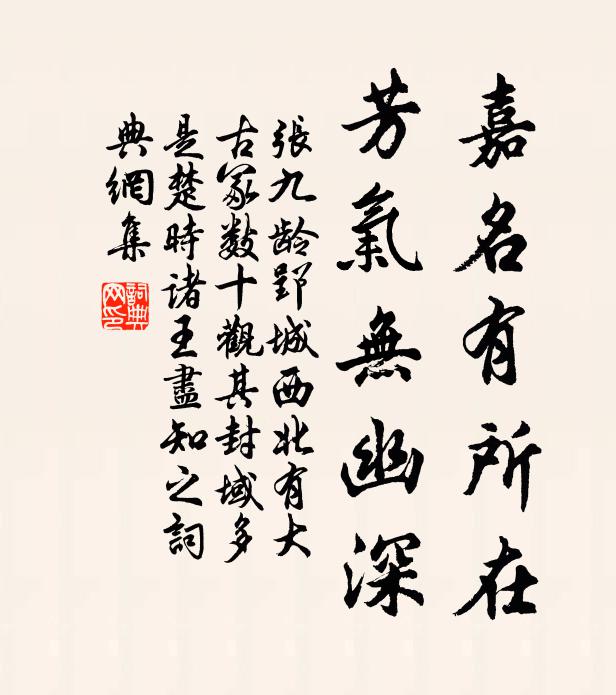 嘉名有所在
芳氣無幽深
張九齡郢城西北有大
古冢數十觀其封域多
是楚時諸王盡知之詞
典網集
詞典
网印